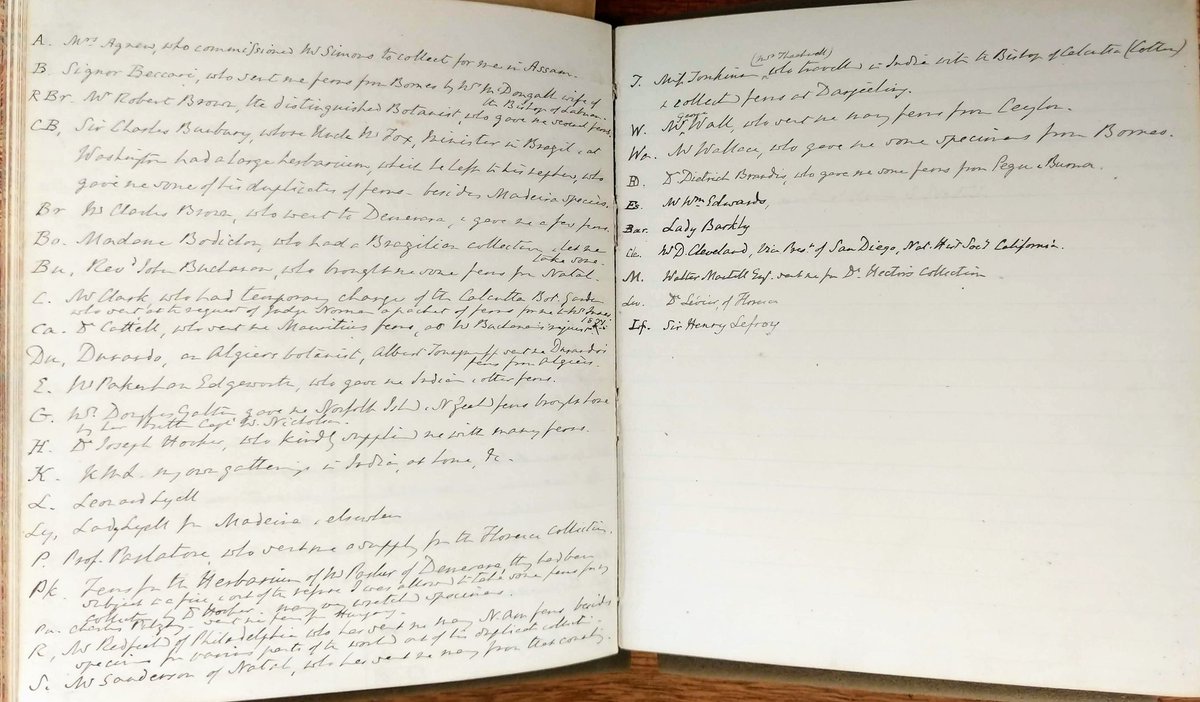 A. Mrs Agnew, who commissioned Mr Simons to collect for me in Assam.
B. Signor Beccari, who sent me ferns from Borneo by Mrs McDougall wife of
the Bishop of Labuan.
R Br. Mr Robert Brown, the distinguished Botanist, who gave me several ferns.
CB, Sir Charles Bunbury, whose Uncle Mr Fox, Minister in Brazil, & at
Washington had a large herbarium, which he left to his nephew, who
gave me some of his duplicates of ferns - besides Madeira species.
Br Mr Charles Brown, who went to Demerara, & gave me a few ferns.
Bo. Madame Bodichon, who had a Brazilian collection, & let me
take some.
Bu, Revd John Buchanan, who brought me some ferns from Natal.
C. Mr Clark, who had temporary charge of the Calcutta Bot. Garden
who sent at the request of Judge Norman a packet of ferns for me
Ca. Dr Cattell, who sent me Mauritius ferns, at Mr Buchanan's request
Du, Durando, an Algiers botanist, Albert sent me Durando's
ferns from Algiers.
E. Mr Pakenham Edgeworth, who gave me Indian & other ferns.
G. Mrs Douglas Galton gave me Norfolk Isld & N Zeald ferns brought home
by her brother Capt W. Nicholson.
H. Dr Joseph Hooker, who kindly supplied me with many ferns.
K. K M L. my own gatherings in India, at home, &c.
L. Leonard Lyell
Ly, Lady Lyell from Madeira & elsewhere
P. Prof. Parlatore, who sent me a supply from the Florence Collection.
Pk. Ferns from the Herbarium of Mr Parker of Demerara, they had been
subject to a fire, & out of the refuse I was allowed to take some ferns for my
collection by Dr Hooker - many very wretched specimens.
Pu. Charles sent me ferns from Hungary.
R, Mr Redfield of Philadelphia who has sent me many N. Am ferns, besides
species from various parts of the world out of his duplicate collection.
S. Mr Sanderson of Natal, who has sent me many from that country.
(Mrs )
T. Miss Tonkinson, who travelled in India with the Bishop of Calcutta (Cotton)
& collected ferns at Darjeeling.
W. Mr Wall, who sent me many ferns from Ceylon.
Wa. Mr Wallace, who gave me some specimens from Borneo.
D. Dr Dietrich Brandis, who gave me some ferns from Pegu & Burma.
Es. Mr Wm Edwards,
Bar. Lady Barkly
Cle. Mr D. Cleveland, Vice Prest of San Diego, Nat. Hist Socy California.
M. Walter Mantell Esq. sent me from Dr Hector's Collection
Lev. Dr Lévier, of Florence
Lf. Sir Henry Lefroy